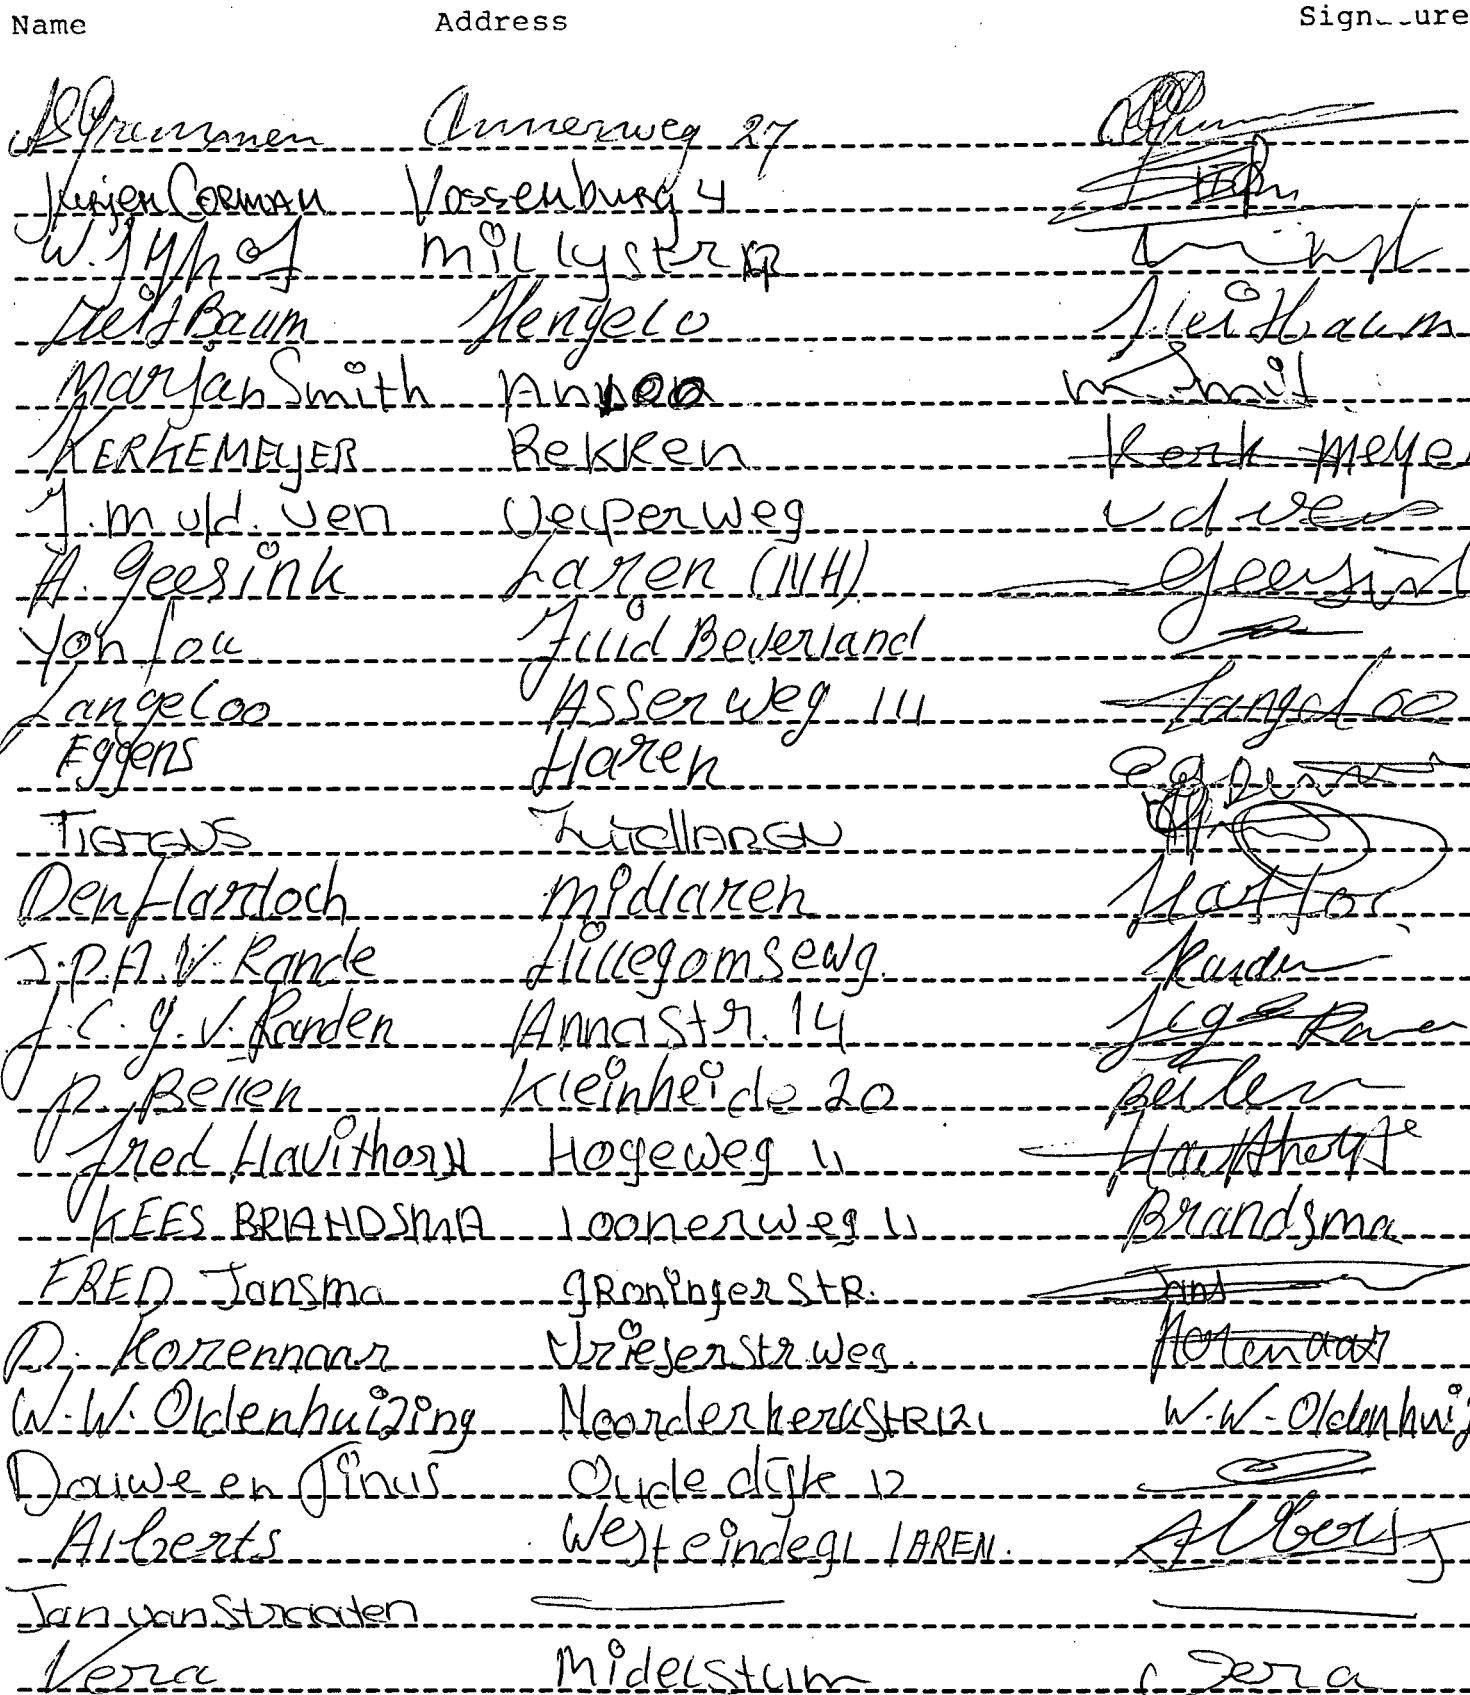 Name Address Sign__ure
Annerweg 27
Jurjen CORMAN Vossenburg 4
Millystr
Hengelo
Marjan Smith Annen M Smit
KERKEMEYER Rekken Kerk Meye
J.M v/d. Ven Velperweg vd ven
A. Geesink Laren (NH) Geesink
Yoh fou Zuid Beverland
Langeloo Asserweg 111 Langeloo
Eggens Haren
Zuidlaren
Den Hartoch Midlaren
J.P.A.V. Rande Hillegomsewg.
J.C.G.V. Randen Annastr. 14
P. Beilen Kleinheide 20 Beilen
Fred Havithorn Hogeweg 11
KEES BRANDSMA Loonerweg 11 Brandsma
FRED Jansma GRoningerstR. Jans
D. Korennaar Vriezerstrweg. Korenaar
W.W. Oldenhuizing NoorderkerkstR121 W.W. Oldenhuiz
Douwe en Tinus Oude dijk 12
Alberts Westeindegl LAREN. Alberts
Jan van Straaten
Vera Midelstum Vera